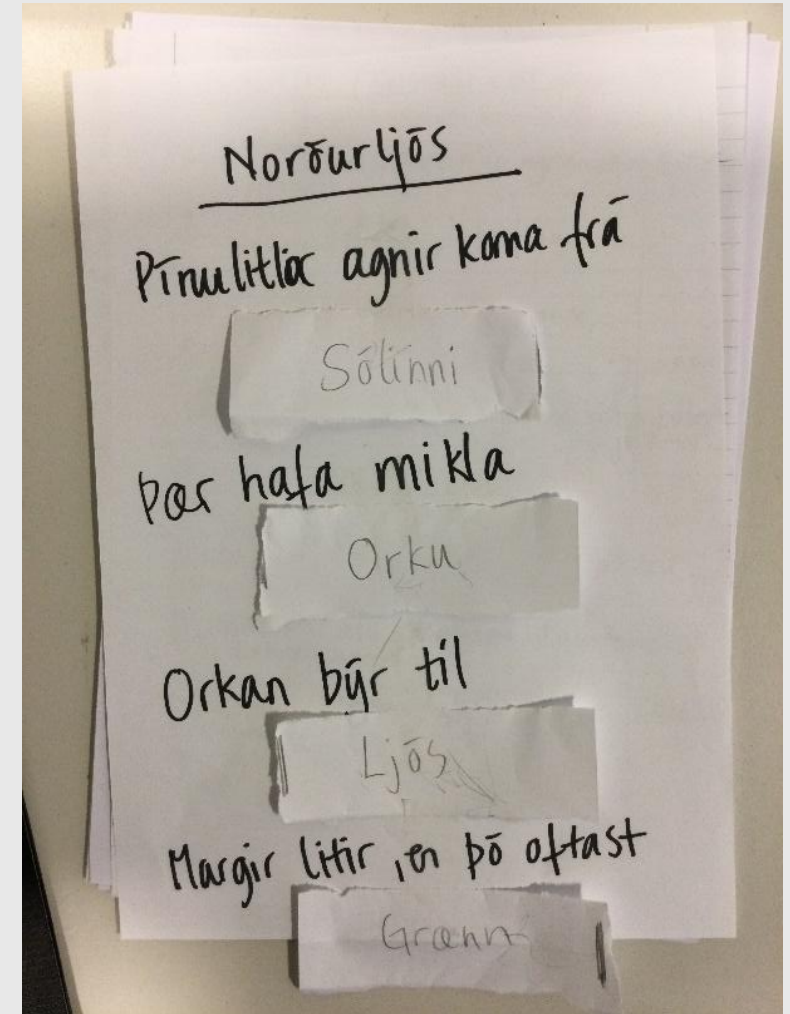 Norðurljós
Pínulitlar agnir koma frá
Sólinni
Þær hafa mikla
Orku
Orkan býr til
Ljós
Margir litir, en þó oftast
Grænn